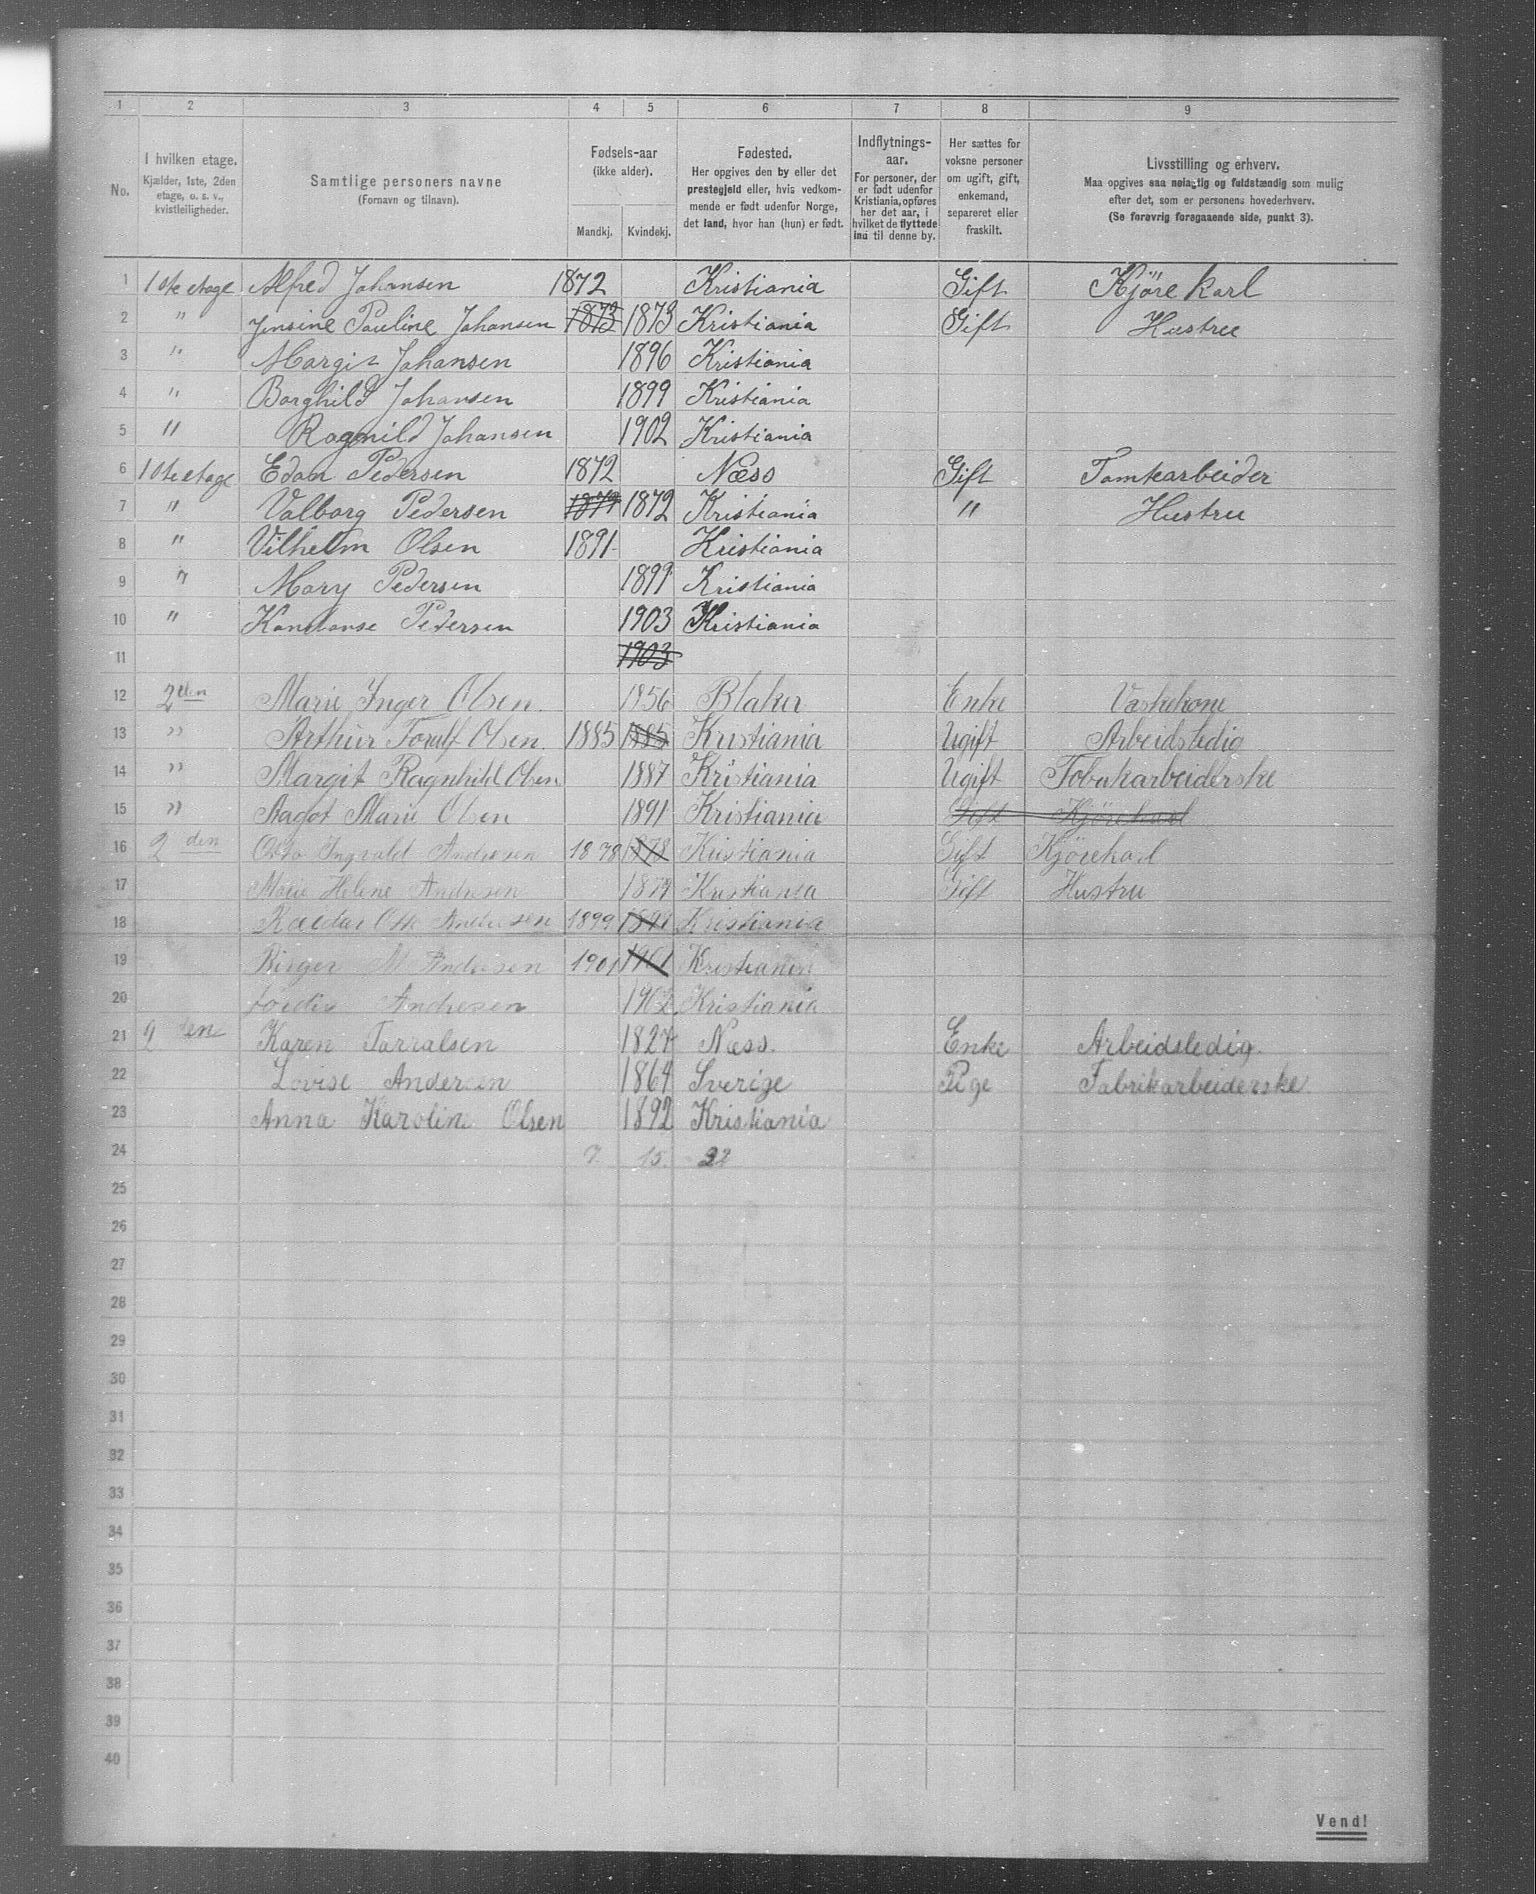 1 2 3 4 5 6 7 8 9
No. I hvilken etage. Kjælder, 1ste, 2den etage, o. s. v., kvistleiligheder. Samtlige personers navne (Fornavn og tilnavn). Fødsels-aar (ikke alder). Mandkj. Kvindekj. Fødested. Her opgives den by eller det prestegjeld eller, hvis vedkommende er født udenfor Norge, det land, hvor han (hun) er født. Indflytnings-aar. For personer, der er født udenfor Kristiania, opføres her det aar, i hvilket de flyttede ind til denne by. Her sættes for voksne personer om ugift, gift, enkemand, separeret eller fraskilt. Livsstilling og erhverv. Maa opgives saa nøiagtig og fuldstændig som mulig efter det, som er personens hovederhverv. (Se forøvrig foregaaende side, punkt 3).
1 1ste etage Alfred Johansen 1872 Kristiania Gift Kjøre karl
2 " Jensine Pauline Johansen 1873 1873 Kristiania Gift Hustru
3 " Margit Johansen 1896 Kristiania
4 " Borghild Johansen 1899 Kristiania
5 " Ragnild Johansen 1902 Kristiania
6 1ste etage Edan Pedersen 1872 Næss Gift Tomtearbeider
7 " Valborg Pedersen 1872 Kristiania " Hustru
8 " Vilhelm Olsen 1891 Kristiania
9 " Mary Pedersen 1899 Kristiania
10 " Konstanse Pedersen 1903 Kristiania
11 1903
12 2den Marie Inger Olsen 1856 Blaker Enke Vaskekone
13 " Arthur Toralf Olsen 1885 1885 Kristiania Ugift Arbeidsledig
14 " Margit Ragnhild Olsen 1887 Kristiania Ugift Tobakarbeiderske
15 " Aagot Marie Olsen 1891 Kristiania Gift Kjørekarl
16 2den Otto Ingvald Andresen 1878 1878 Kristiania Gift Kjørekarl
17 Marie Helene Andresen 1879 Kristiania Gift Hustru
18 Reidar Otto Andresen 1899 1899 Kristiania
19 Birger M Andresen 1901 1901 Kristiania
20 Andresen 1902 Kristiania
21 2den Karen Torralsen 1827 Næss. Enke Arbeidsledig.
22 Lovise Andersen 1864 Sverige Pige Fabrikarbeiderske
23 Anna Karoline Olsen 1892 Kristiania
24 7 15. 22
25
26
27
28
29
30
31
32
33
34
35
36
37
38
39
40
Vend!